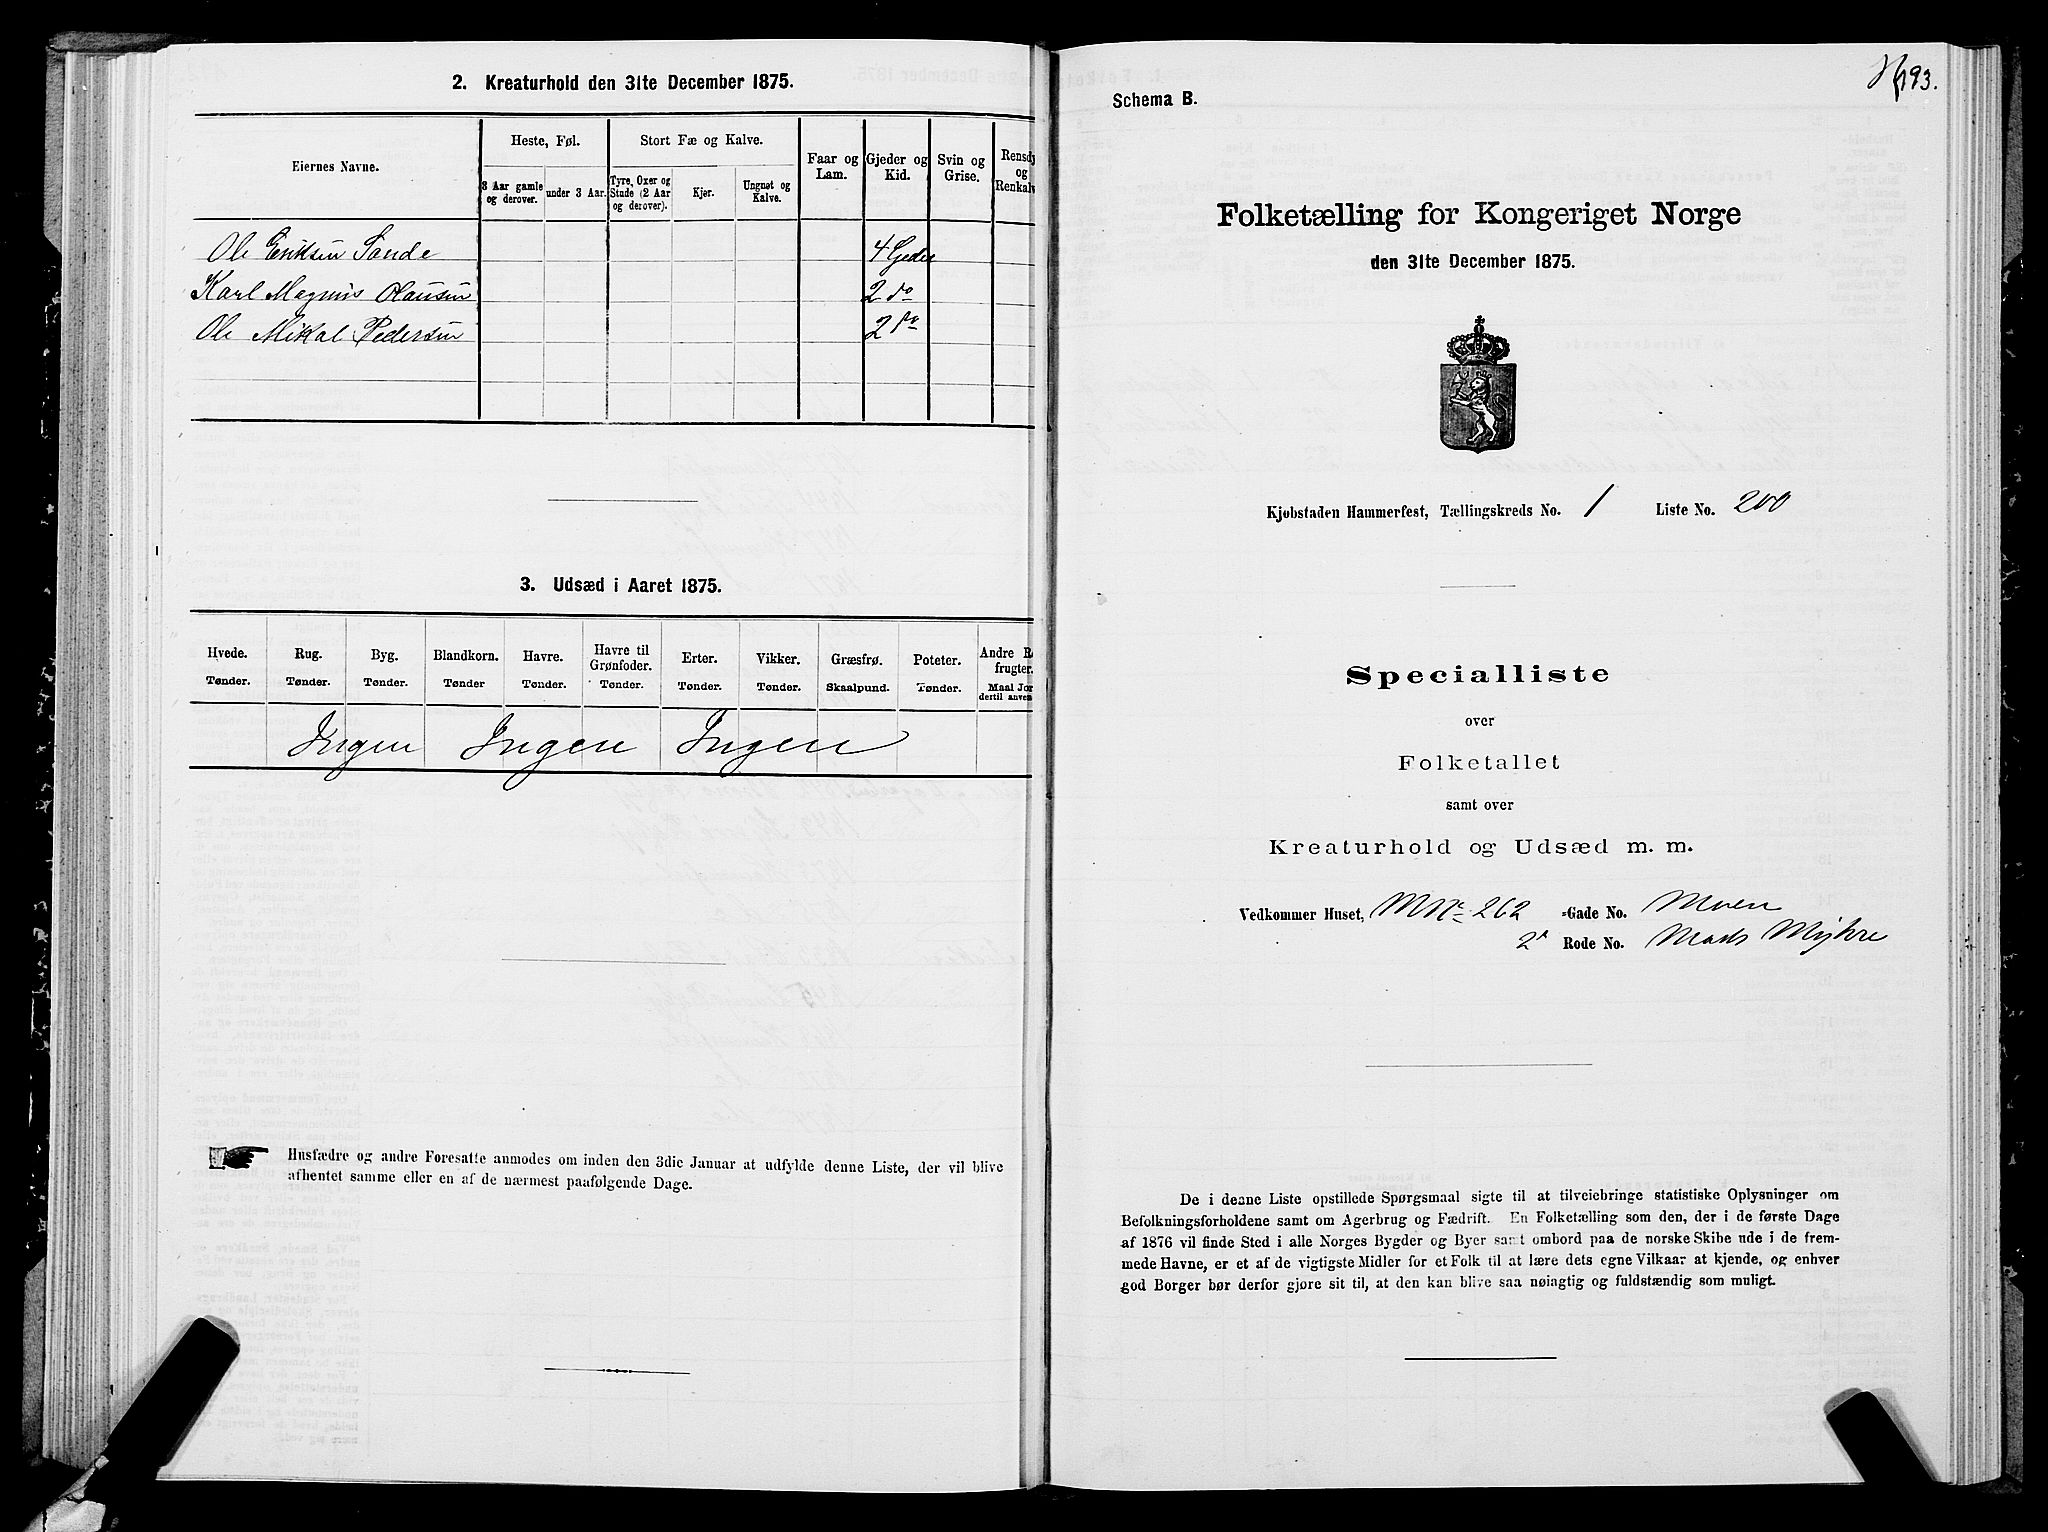 2. Kreaturhold den 31te December 1875.
Eiernes Navne.
Heste, Føl.
Stort Fæ og Kalve.
Faar og Lam.
Gjeder og Kid.
Svin og Grise.
Rensdy
og
Renkalv
3 Aar gamle og derover.
under 3 Aar.
Tyre, Oxer og Stude (2 Aar og derover).
Kjør.
Ungnøt og Kalve.
Ole Eriksen Sande 4 Gjeder
Karl Magnus Olausen 2 do
Ole Mikal Pedersen 2 do
3. Udsæd i Aaret 1875.
Hvede. Rug. Byg. Blandkorn. Havre. Havre til Grønfoder. Erter. Vikker. Græsfrø. Poteter. Andre R
frugter.
Tønder. Tønder. Tønder. Tønder Tønder. Tønder. Tønder. Tønder. Skaalpund. Tønder. Maal Jor
dertil anven
Ingen Ingen Ingen
Husfædre og andre Foresatte anmodes om inden den 3die Januar at udfylde denne Liste, der vil blive
afhentet samme eller en af de nærmest paafølgende Dage.
193.
Schema B.
Folketælling for Kongeriget Norge
den 31te December 1875.
Kjøbstaden Hammerfest, Tællingskreds No. 1 Liste No. 200
Specialliste
over
Folketallet
samt over
Kreaturhold og Udsæd m. m.
Vedkommer Huset, MNr. 262 -Gade No. Moen
2d Rode No. Mads Myhre
De i denne Liste opstillede Spørgsmaal sigte til at tilveiebringe statistiske Oplysninger om
Befolkningsforholdene samt om Agerbrug og Fædrift. En Folketælling som den, der i de første Dage
af 1876 vil finde Sted i alle Norges Bygder og Byer samt ombord paa de norske Skibe ude i de frem-
mede Havne, er et af de vigtigste Midler for et Folk til at lære dets egne Vilkaar at kjende, og enhver
god Borger bør derfor gjøre sit til, at den kan blive saa nøiagtig og fuldstændig som muligt.